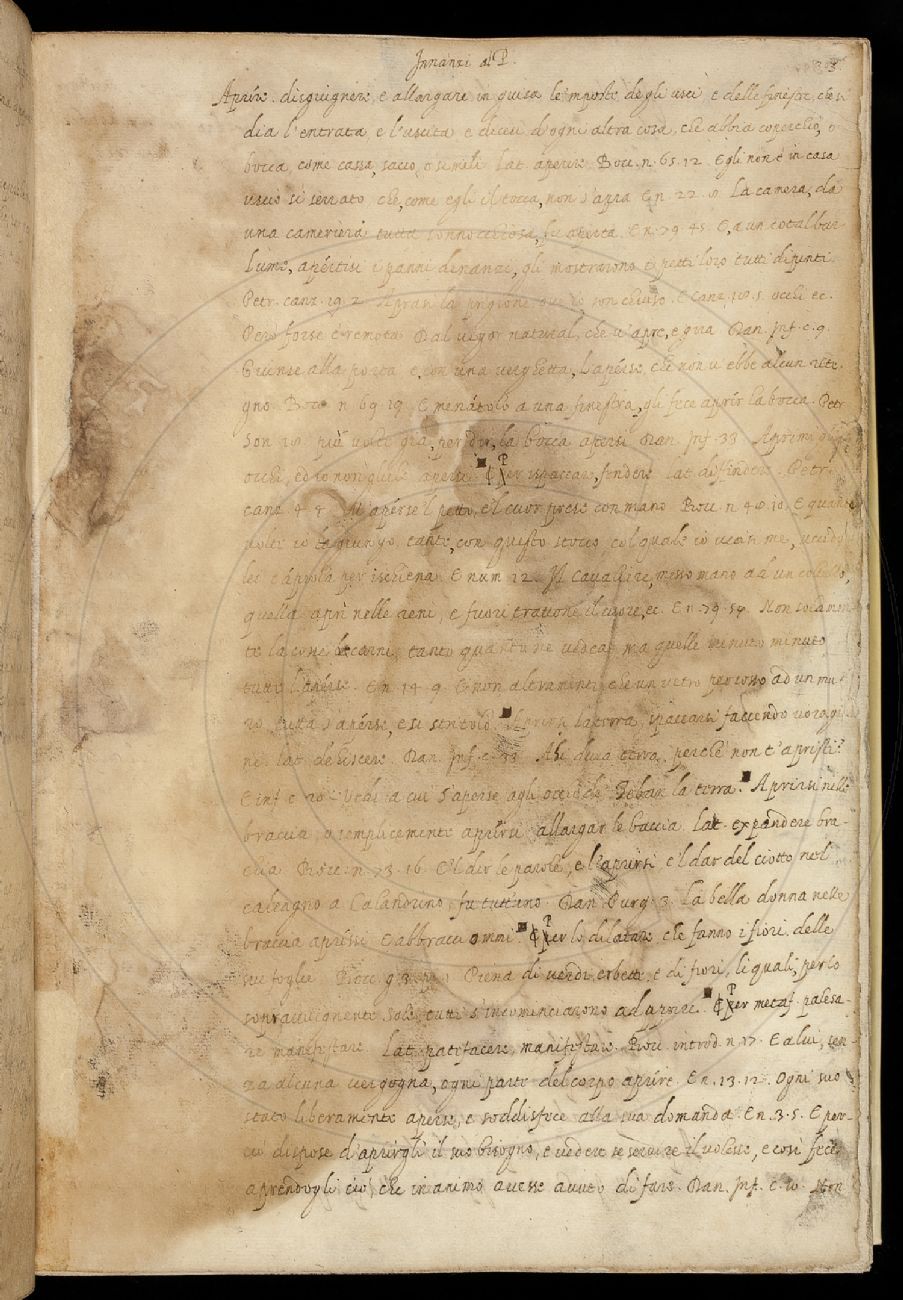 Innanzi al P.
Aprire. disgiugnere, e allargare in guisa le imposte degli usci e delle finestre, che si
dia l'entrata e l'uscita e dicesi d'ogni altra cosa, che abbia coperchio, o
bocca, come cassa, sacco, o simili lat. aperire. Bocc. n. 65. 12. Egli non è in casa
uscio sì serrato che, come egli il tocca, non s'apra E n. 22. 8. La camera, da
una cameriera tutta sonnocchiosa, fu aperta. E n. 79. 45. E, a un cotal bar
lume, apertisi i panni dinanzi, gli mostrarono i petti loro tutti dipinti.
Petr. canz. 19. 2. Aprasi la prigione ov' io son chiuso. E canz. 18. 5. occhi ec.
Però forse è remota Dal vigor natural, che v'apre, e gira Dan. Inf. c. 9.
Giunse alla porta e con una verghetta, L'aperse, che non v' ebbe alcun rite
gno Bocc. n 69. 19. E menatolo a una finestra, gli fece aprir la bocca. Petr
son 18. più volte già, per dir, la bocca apersi Dan. Inf. 33 Aprimi gli
occhi, ed io non gliele apersi. ¶ Per ispaccar, fendere lat diffindere. Petr.
canz. 4. 4. M' aperse 'l petto, e 'l cuor prese con mano Bocc. n 48. 18. E quante
volte io la giungo, tante, con questo stocco, col quale io uccisi me, uccido
lei e aprola per ischiena E num 12. Il Cavaliere, messo mano ad un coltello,
quella aprì nelle reni, e fuori trattone il cuore, ec. E n. 79. 54. Non solamen
te la cone le carni, tanto quanto ne vedea ma quelle minuto minuto
tutte l'aperse. E n. 14. 9. E non altramenti, che un vetro percosso ad un mu-
ro tutta s'aperse, e si stritolò. Aprirsi la terra, spaccarsi facendo voragi
ne. lat. dehiscere. Dan. Inf. c. 33. Ahi dura terra, perchè non t' apristi?
E inf. c. 20. Vedi a cui s'aperse agli occhi de' Teban la terra. Aprirsi nelle
braccia, o semplicemente aprirsi allargar le baccia. Lat. expandere bra-
chia. Bocc. n. 73. 16. E 'l dir le parole, e l'aprirsi, e 'l dar del ciotto nel
calcagno a Calandrino, fu tutt'uno. Dan. Purg. 3. La bella donna nelle
braccia aprissi E abbracciommi. ¶ Per lo dilatare, che fanno i fiori delle
sue foglie Bocc. g. 3. p. 1 Piena di verdi erbette e di fiori, li quali, per lo
sopravvegnente sole, tutti s'incominciavano ad aprire. ¶ Per metaf. palesa-
re manifestare. Lat. patefacere, manifestare. Bocc. introd. n. 17. E a lui, sen-
za alcuna vergogna, ogni parte del corpo aprire. E n. 13. 12. Ogni suo
stato liberamente aperse, e soddisfece alla sua domanda. E n. 3. 5. E per-
ciò dispose d'aprirgli il suo bisogno, e vedere se servire il volesse, e così fece
aprendogli ciò, che in animo avesse avuto di fare. Dan. Inf. c. 10. Non